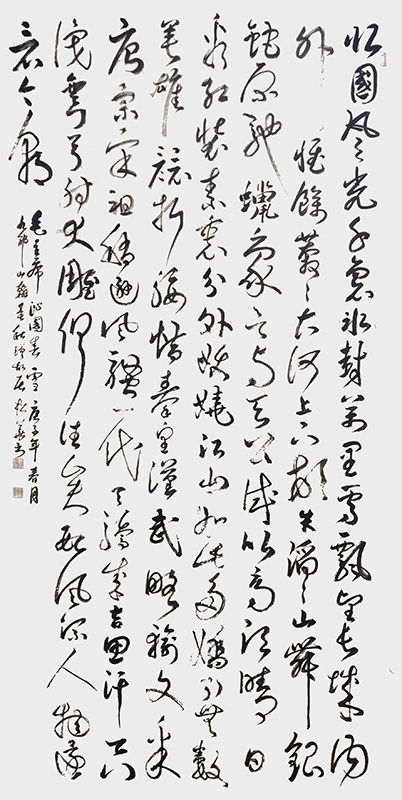 北國風光千里冰封萬里雪飄望長城内
外惟餘莽々大河上下頓失滔々山舞銀
蛇原馳蠟象欲与天公試比高須晴日
看紅裝素裹分外妖嬈江山如此多嬌引無數
英雄競折腰惜秦皇漢武略輸文采
唐宗宋祖稍遜風騷一代天驕成吉思汗只
識彎弓射大雕俱往矣數風流人物還
看今朝
毛主席沁園春雪庚子年春月